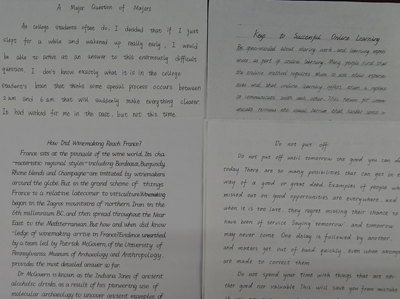 A Major Question of Majors
As college students often do, I decided that if I just
slept for a while and wakened up really early, I would
be able to arrive at an answer to this extremely difficult
question. I don't know exactly what it is in the college
student's brain that thinks some special process occurs between
2 a.m. and 6 a.m. that will suddenly make everything clearer.
It had worked for me in the past, but not this time.
Keys to Successful Online Learning
Be open-minded about sharing work and learning experi-
ences as part of online learning. Many people find that
the online method requires them to use
and that online learning offers them a
to communicate with each other. This forum for commu-
nicate removes the visual barrier that
How Did Winemaking Reach France?
France sits at the pinnacle of the wine world. Its cha-
racteristic regional styles-including Bordeaux, Burgundy,
Rhone blends and Champagne-are imitated by winemakers
around the globe. But in the grand scheme of things
France is a relative latecomer to viticulture. Winemaking
began in the Zagros mountains of northern Iran in the
6th millennium BC, and then spread throughout the Near
East to the Mediterranean. But how and when did know-
-ledge of winemaking arrive in France? Evidence unearthed
by a team led by Patrick McGovern, of the University of
Pennsylvania Museum of Archaeology and Anthropology,
provides the most detailed answer so far.
Dr McGovern is known as the Indiana Jones of ancient
alcoholic drinks, as a result of his pioneering use of
molecular archaeology to uncover ancient examples of
Do not put off
Do not put off until tomorrow the good you can do
today. There are so many possibilities that can get in
way of a good or great deed. Examples of people who
missed out on good opportunities are everywhere, and
when it is too late, they regret missing their chance to
have been of service. Saying tomorrow and tomorrow
may never come. One delay is followed by another,
and matters get out of hand quickly even when attempts
are made to correct them.
Do not spend your time with things that are nei-
ther good nor valuable. This will save you from mistake